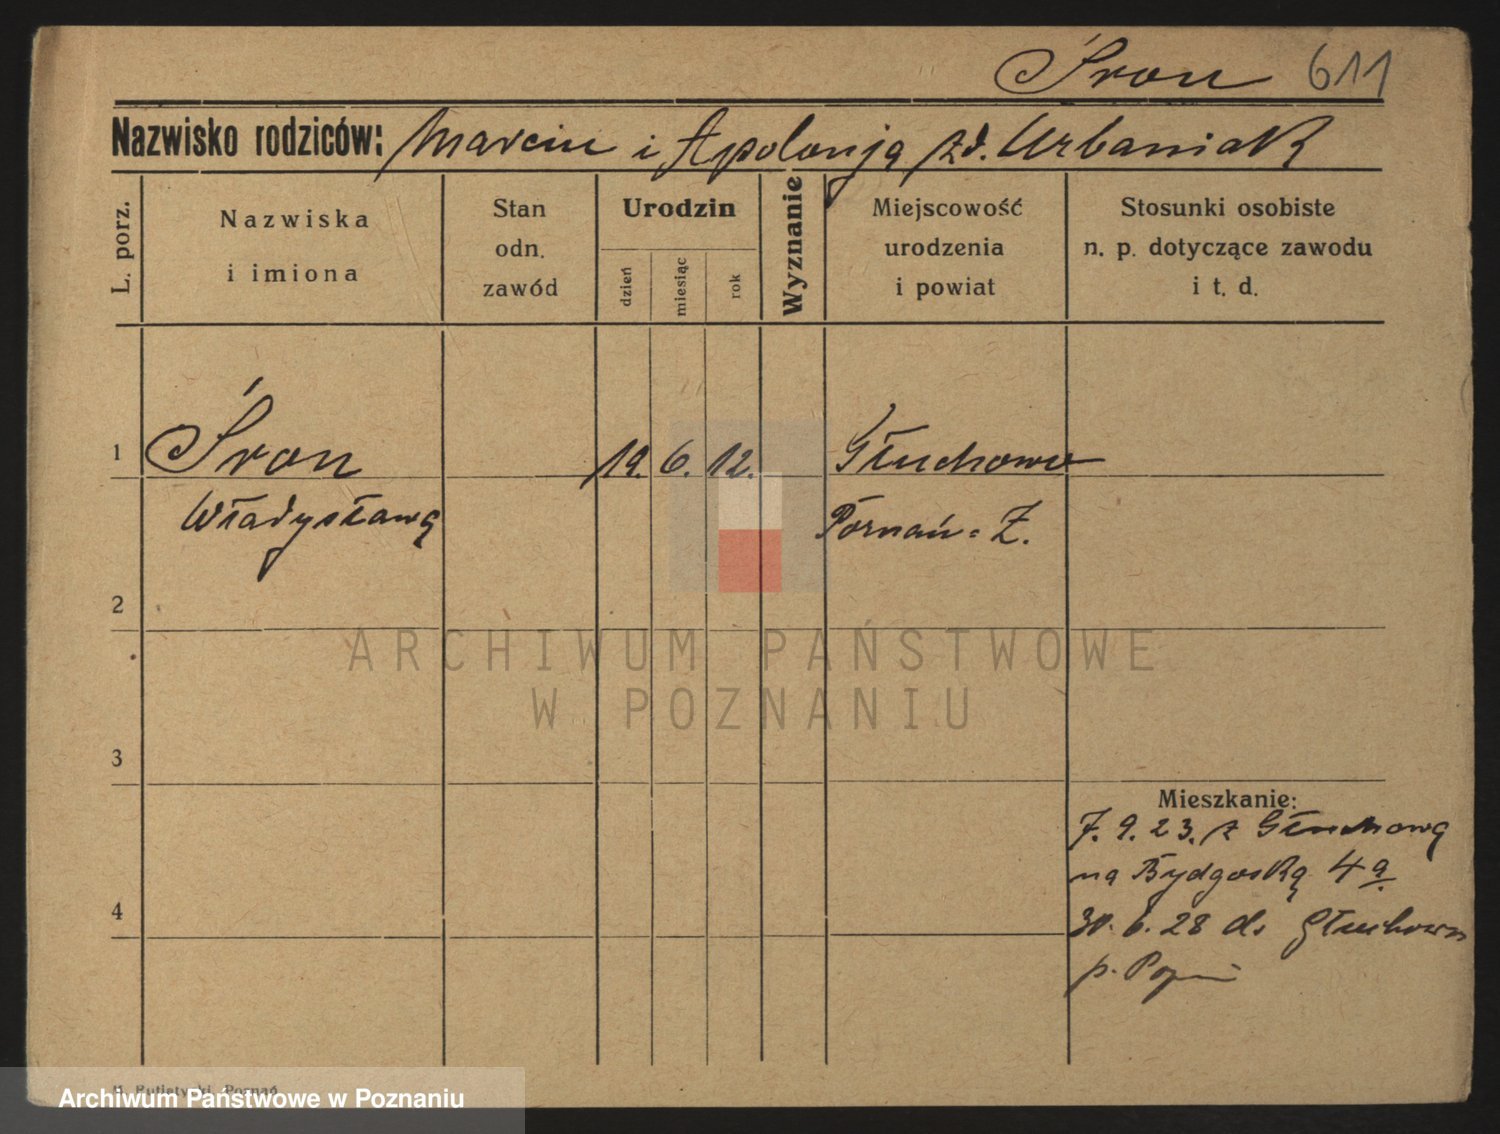 Śron 611
Nazwisko rodziców: Marcin i Apolonja zd. Urbaniak
L. porz.
Nazwiska
i imiona
Stan
odn.
zawód
Urodzin
dzień
miesiąc
rok
Wyznanie
Miejscowość
urodzenia
i powiat
Stosunki osobiste
n. p. dotyczące zawodu
i t. d.
1 Śron 19. 6. 12. Głuchowo
Władysława Poznań = Z.
2
ARCHIWUM PAŃSTWOWE
W POZNANIU
3
Mieszkanie:
7. 9. 23. z Głuchowa
na Bydgoską 4a
4
30. 6. 28 do Głuchowo
p.
Poznań
Archiwum Państwowe w Poznaniu